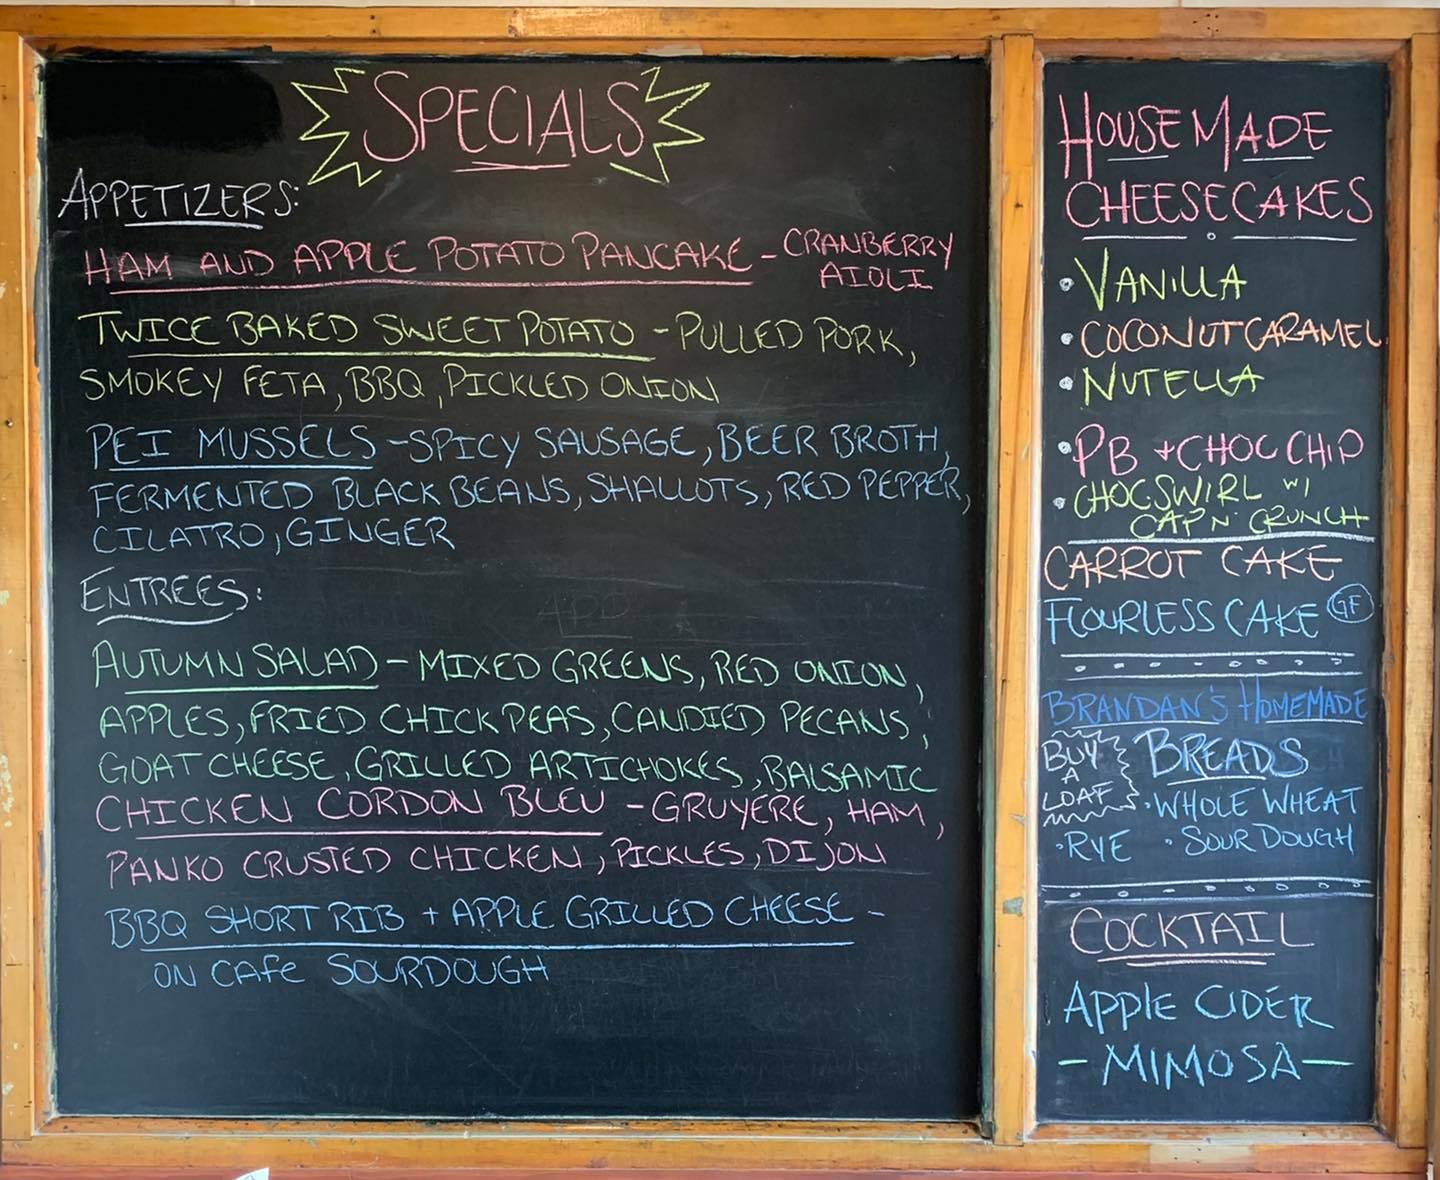 SPECIALS
APPETIZERS:
HAM AND APPLE POTATO PANCAKE - CRANBERRY
AIOLI
TWICE BAKED SWEET POTATO - PULLED PORK,
SMOKEY FETA, BBQ, PICKLED ONION
PEI MUSSELS - SPICY SAUSAGE, BEER BROTH,
FERMENTED BLACK BEANS, SHALLOTS, RED PEPPER,
CILATRO, GINGER
ENTREES:
AUTUMN SALAD - MIXED GREENS, RED ONION,
APPLES, FRIED CHICK PEAS, CANDIED PECANS,
GOAT CHEESE, GRILLED ARTICHOKES, BALSAMIC
CHICKEN CORDON BLEU - GRUYERE, HAM,
PANKO CRUSTED CHICKEN, PICKLES, DIJON
BBQ SHORT RIB + APPLE GRILLED CHEESE -
ON CAFE SOURDOUGH
HOUSEMADE
CHEESECAKES
• VANILLA
• COCONUT CARAMEL
• NUTELLA
• PB + CHOC CHIP
• CHOC SWIRL W/
CAP N' CRUNCH
CARROT CAKE
FLOURLESS CAKE GF
BRANDAN'S HOMEMADE
BREADS
BUY
A
LOAF
• WHOLE WHEAT
• RYE • SOUR DOUGH
COCKTAIL
APPLE CIDER
- MIMOSA -